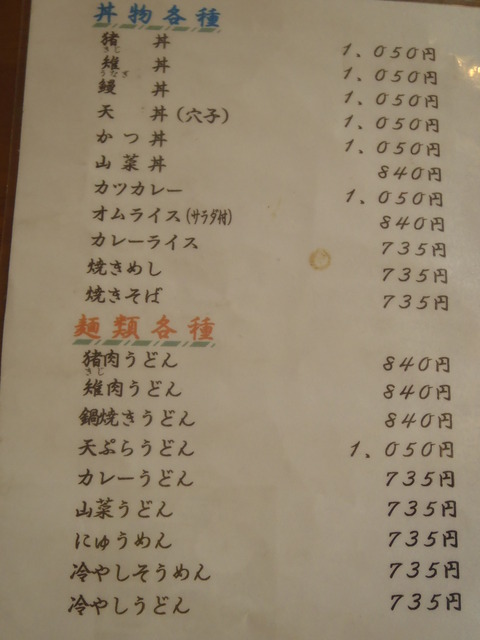 丼物各種
猪 丼 1、050円
きじ
雉 丼 1、050円
うなぎ
鰻 丼 1、050円
天 丼(穴子) 1、050円
かつ丼 1、050円
山菜丼 840円
カツカレー 1、050円
オムライス(サラダ付) 840円
カレーライス 735円
焼きめし 735円
焼きそば 735円
麺類各種
猪肉うどん 840円
きじ
雉肉うどん 840円
鍋焼きうどん 840円
天ぷらうどん 1、050円
カレーうどん 735円
山菜うどん 735円
にゅうめん 735円
冷やしそうめん 735円
冷やしうどん 735円